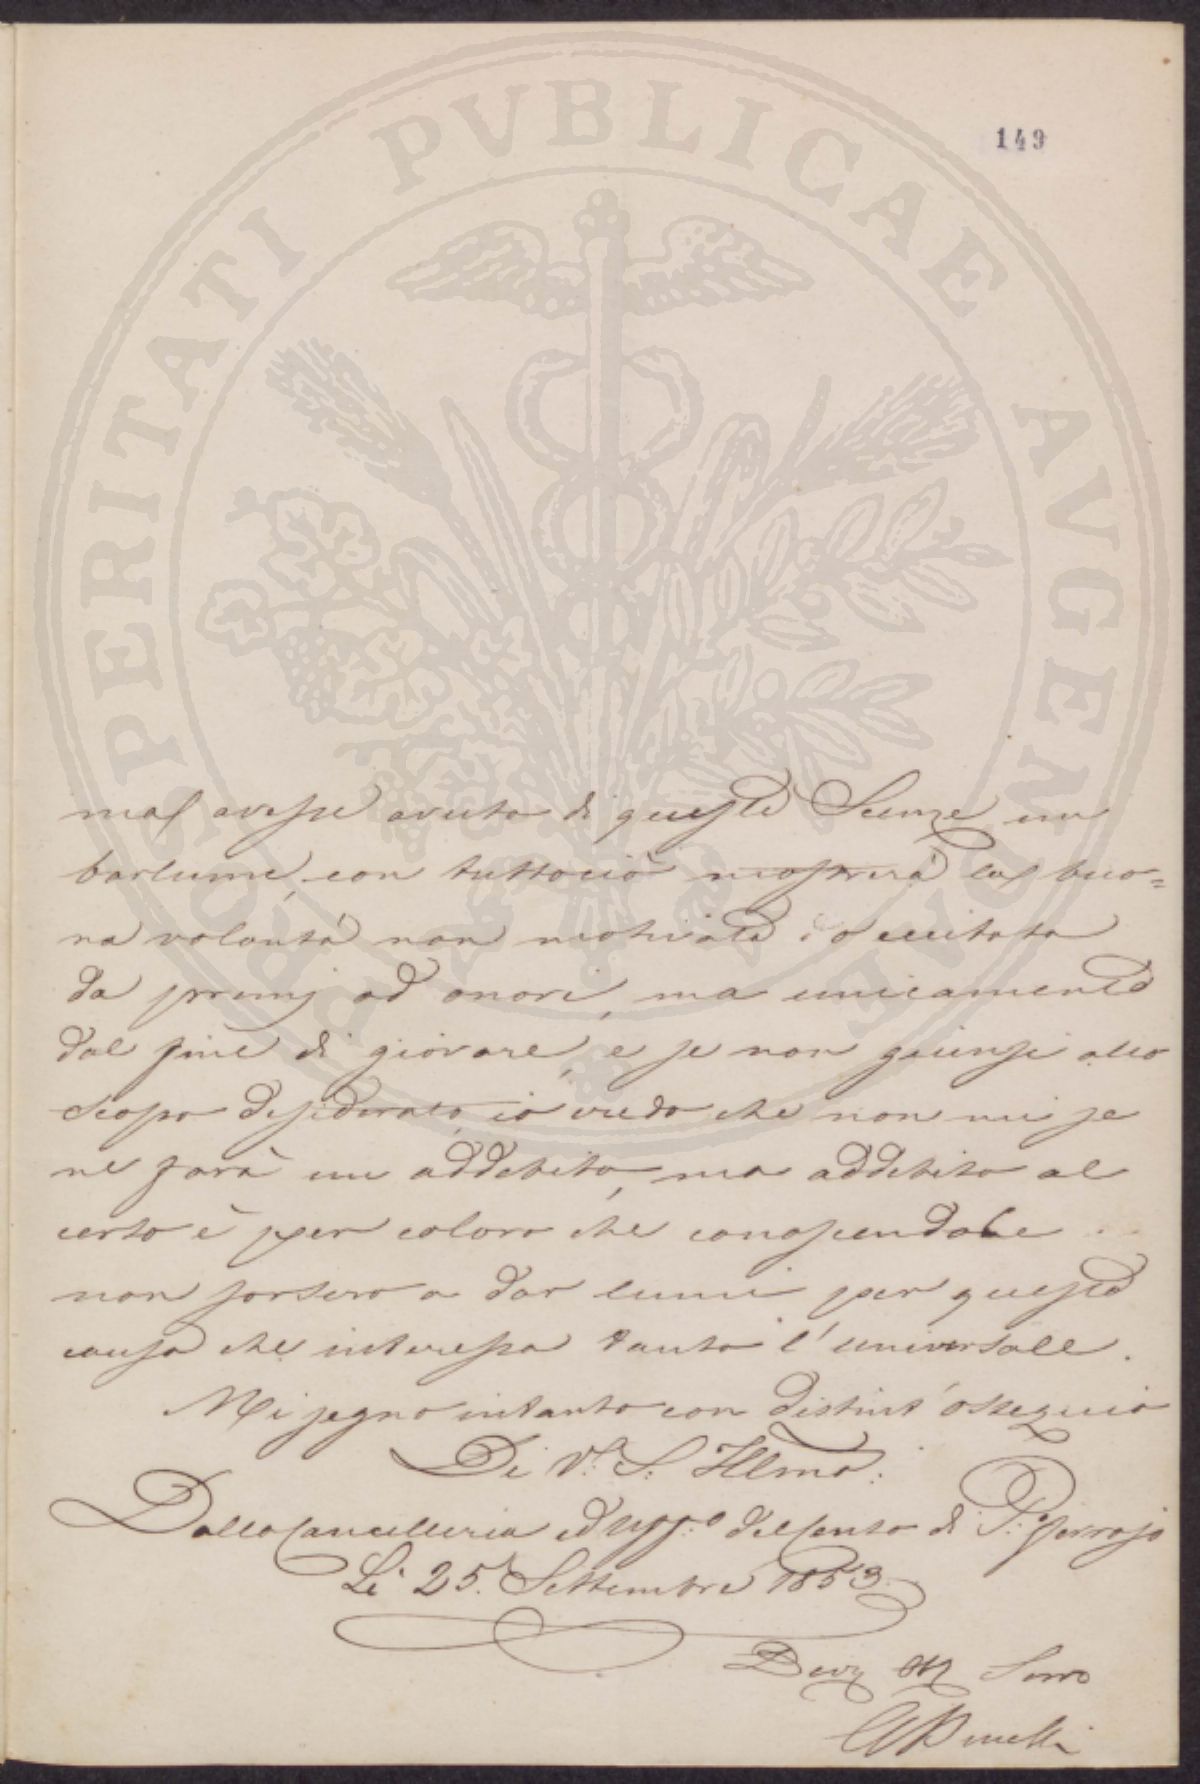 PROSPERITATI PVBLICAE AVGENDAE
149
mai avesse avuto di queste Scienze un
barlume, con tuttociò mostrerà la buo=
na volontà non motivata, o eccitata
da premj od onori, ma unicamente
dal fine di giovare, e se non giunsi allo
scopo desiderato, io credo che non mi se
ne farà un addebito, ma addebito al
certo è per coloro che conoscendole
non sorsero a dar lumi per questa
causa che interessa tanto l'universale.
Mi segno intanto con distint'ossequio
Di V. S. Illma.
Dalla Cancelleria ed Uffo. del Censo di
Li 25. Settembre 1853.
Devo Servo